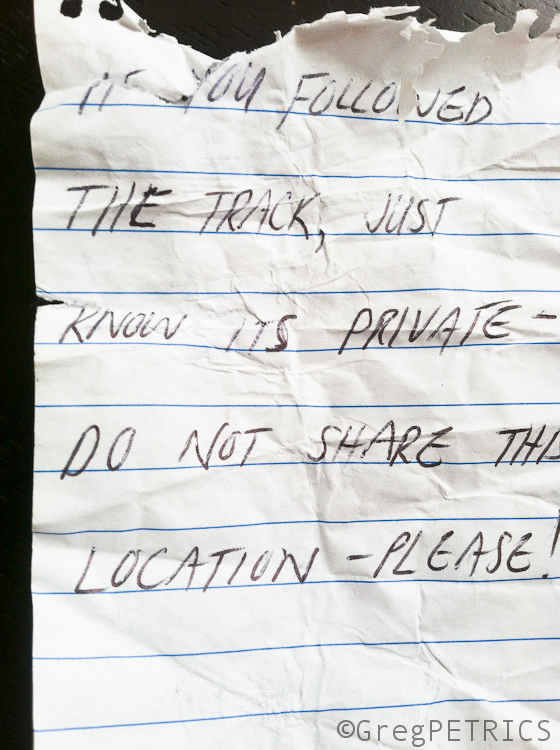 IF YOU FOLLOWED
THE TRACK, JUST
KNOW ITS PRIVATE -
DO NOT SHARE THIS
LOCATION - PLEASE!
©GregPETRICS